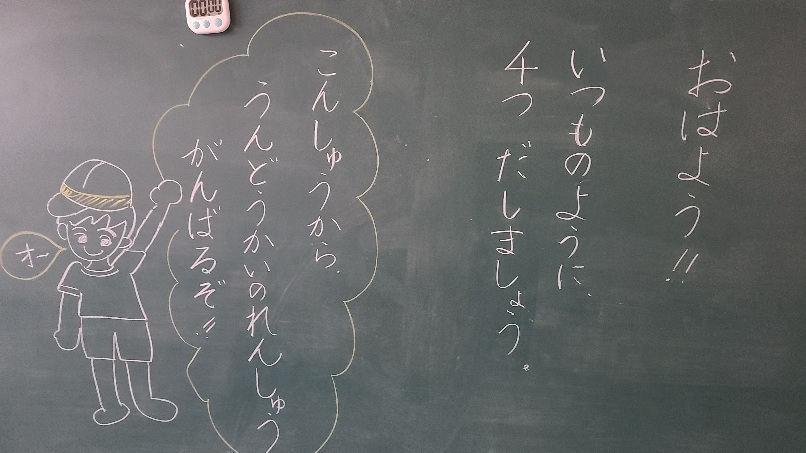 おはよう!!
いつものように、
4つ だしましょう。
こんしゅうから、
うんどうかいのれんしゅう
がんばるぞ!!
オー